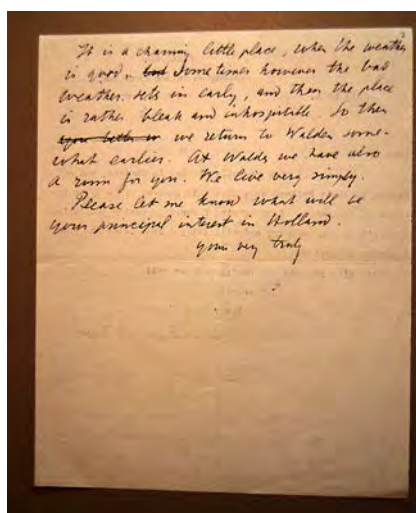 It is a charming little place, when the weather
is good, but Sometimes however the bad
weather sets in early, and then the place
is rather bleak and inhospitable. So then
we return to Walden some-
what earlier. At Walden we have also
a room for you. We live very simply.
Please let me know what will be
your principal interest in Holland.
yours very truly